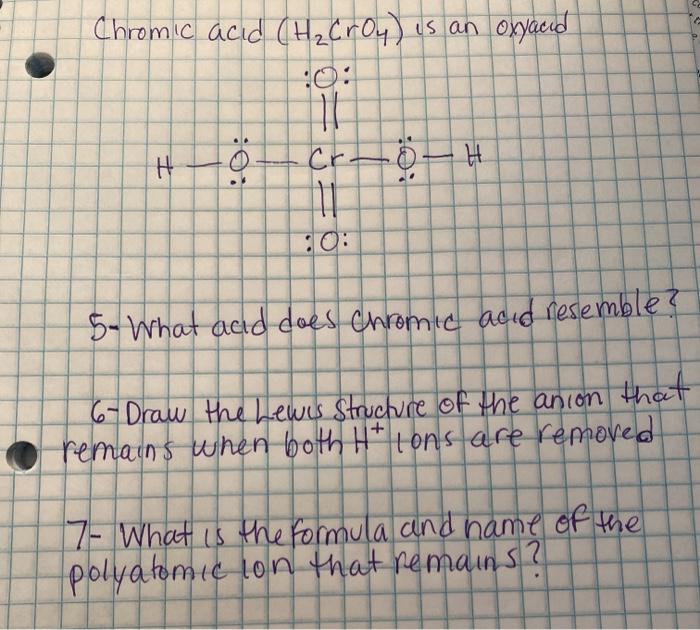 Chromic acid (H₂CrO₄) is an oxyacid
:O:
||
H — Ö — Cr — Ö — H
||
:O:
5- What acid does chromic acid resemble?
6- Draw the Lewis structure of the anion that
remains when both H⁺ ions are removed
7- What is the formula and name of the
polyatomic ion that remains?